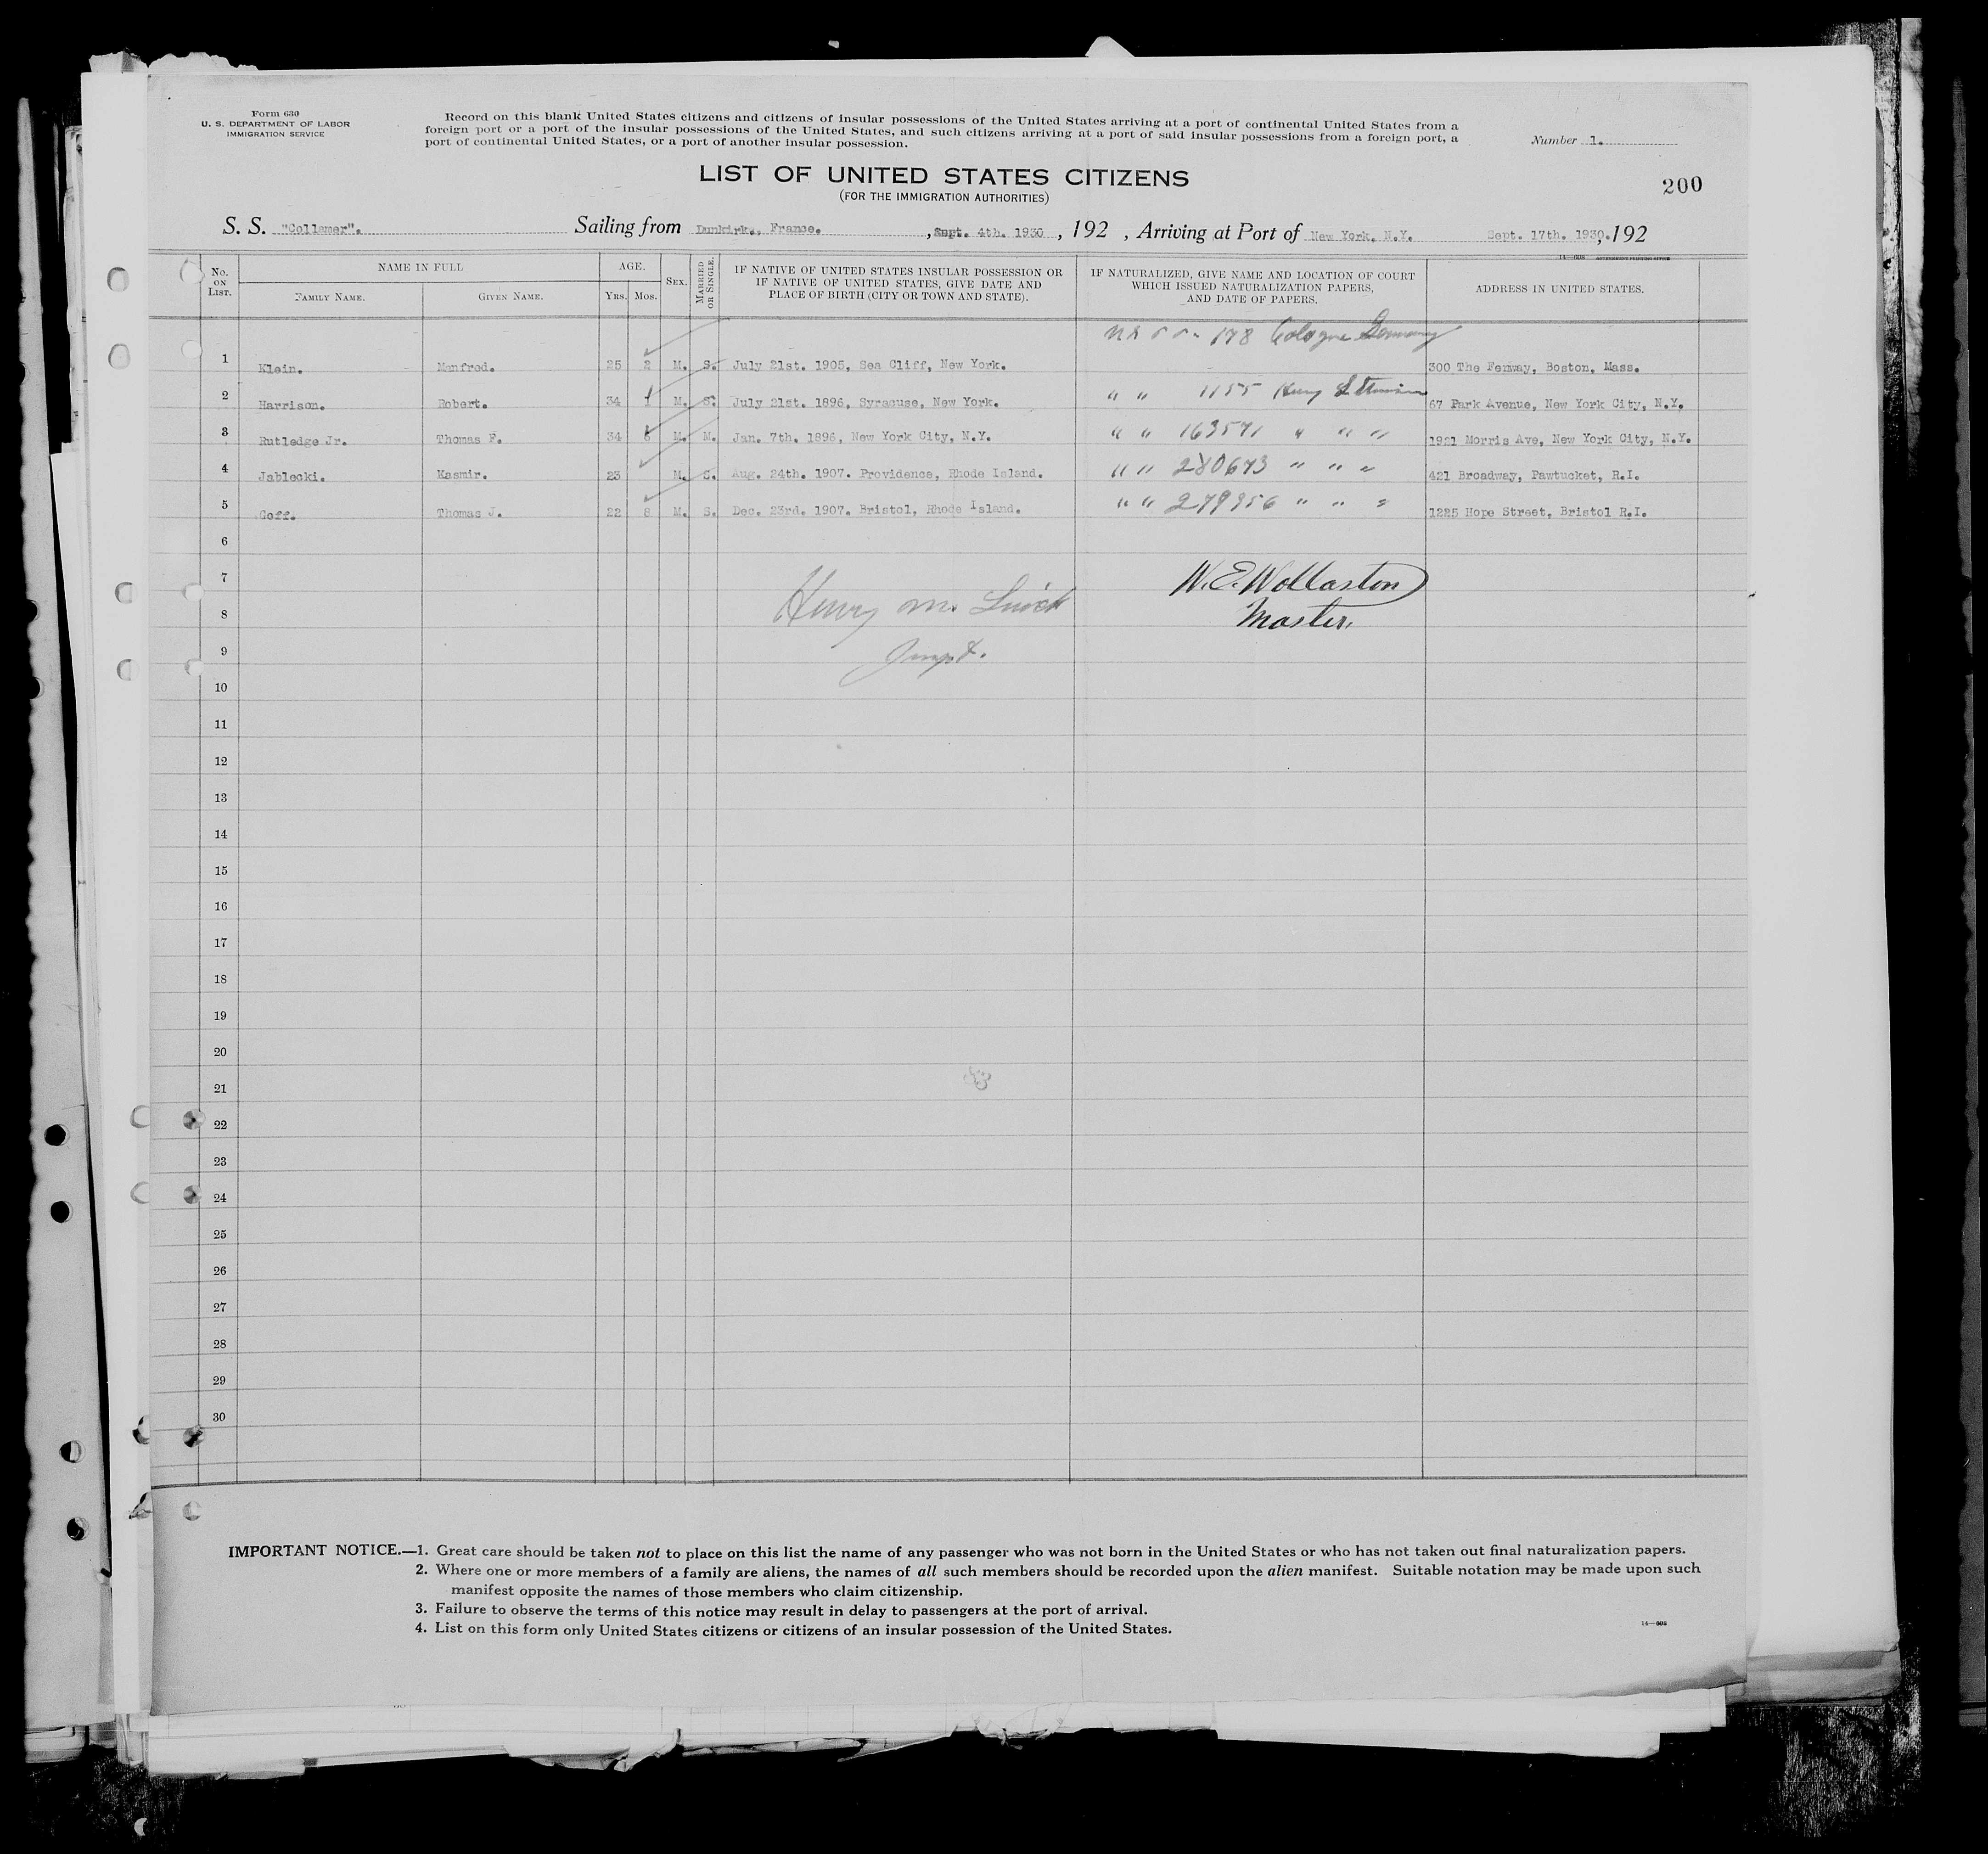 Form 630
U. S. DEPARTMENT OF LABOR
IMMIGRATION SERVICE
Record on this blank United States citizens and citizens of insular possessions of the United States arriving at a port of continental United States from a
foreign port or a port of the insular possessions of the United States, and such citizens arriving at a port of said insular possessions from a foreign port, a
port of continental United States, or a port of another insular possession.
Number 1.
LIST OF UNITED STATES CITIZENS
(FOR THE IMMIGRATION AUTHORITIES)
200
S. S. "Collamer". Sailing from Dunkirk., France. , Sept. 4th. 1930 , 192 , Arriving at Port of New York. N.Y. Sept. 17th. 1930. , 192
No. ON LIST. NAME IN FULL AGE. SEX. MARRIED OR SINGLE. IF NATIVE OF UNITED STATES INSULAR POSSESSION OR IF NATIVE OF UNITED STATES, GIVE DATE AND PLACE OF BIRTH (CITY OR TOWN AND STATE). IF NATURALIZED, GIVE NAME AND LOCATION OF COURT WHICH ISSUED NATURALIZATION PAPERS, AND DATE OF PAPERS. ADDRESS IN UNITED STATES.
FAMILY NAME. GIVEN NAME. YRS. MOS.
178 Cologne Germany
1 Klein. Manfred. 25 2 M. S. July 21st. 1905, Sea Cliff, New York. 300 The Fenway, Boston, Mass.
2 Harrison. Robert. 34 1 M. S. July 21st. 1896, Syracuse, New York. " " 1155 67 Park Avenue, New York City, N.Y.
3 Rutledge Jr. Thomas F. 34 8 M. M. Jan. 7th. 1896, New York City, N.Y. " " 163571 " " " 1921 Morris Ave, New York City, N.Y.
4 Jablecki. Kasmir. 23 M. S. Aug. 24th. 1907. Providence, Rhode Island. " " 280673 " " " 421 Broadway, Pawtucket, R.I.
5 Goff. Thomas J. 22 8 M. S. Dec. 23rd. 1907. Bristol, Rhode Island. " " 279956 " " " 1225 Hope Street, Bristol R.I.
6
7 W. E. Wollaston
8 Henry M. Master.
9
10
11
12
13
14
15
16
17
18
19
20
21
22
23
24
25
26
27
28
29
30
IMPORTANT NOTICE.—1. Great care should be taken not to place on this list the name of any passenger who was not born in the United States or who has not taken out final naturalization papers.
2. Where one or more members of a family are aliens, the names of all such members should be recorded upon the alien manifest. Suitable notation may be made upon such
manifest opposite the names of those members who claim citizenship.
3. Failure to observe the terms of this notice may result in delay to passengers at the port of arrival.
4. List on this form only United States citizens or citizens of an insular possession of the United States.